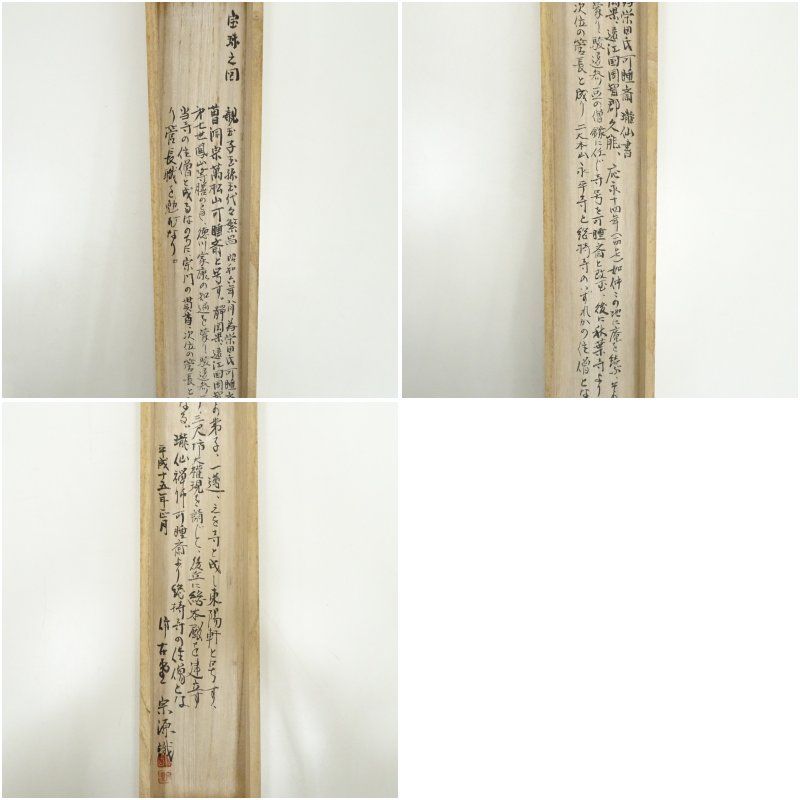 宝珠之図
親玉子玉孫玉代々繁昌 昭和六年八月 為栄田氏可睡斎
曹洞宗萬松山可睡斎と号す。静岡県遠江国周智
第七世鳳山等膳のとき、徳川家康の知遇を蒙り駿遠参
当寺の住僧と成るはのちに宗門の貫首次位の管長と
り管長職を勉むなり。
為栄田氏可睡斎瓏仙書
静岡県遠江国周智郡久能、応永十四年(一四〇七)如仲この地に庵を結ぶ その
蒙り駿遠参三の僧録に任じ寺号を可睡斎と改む、後に秋葉寺より
次位の管長と成り 二大本山永平寺と総持寺のいずれかの住僧とな
の弟子、一遵、之を寺と成し東陽軒と号す、
り三尺坊大権現を請じて、後丘に総本殿を建立す
なる。瓏仙禅師可睡斎より総持寺の住僧とな
平成十五年正月
作古堂 宗源識